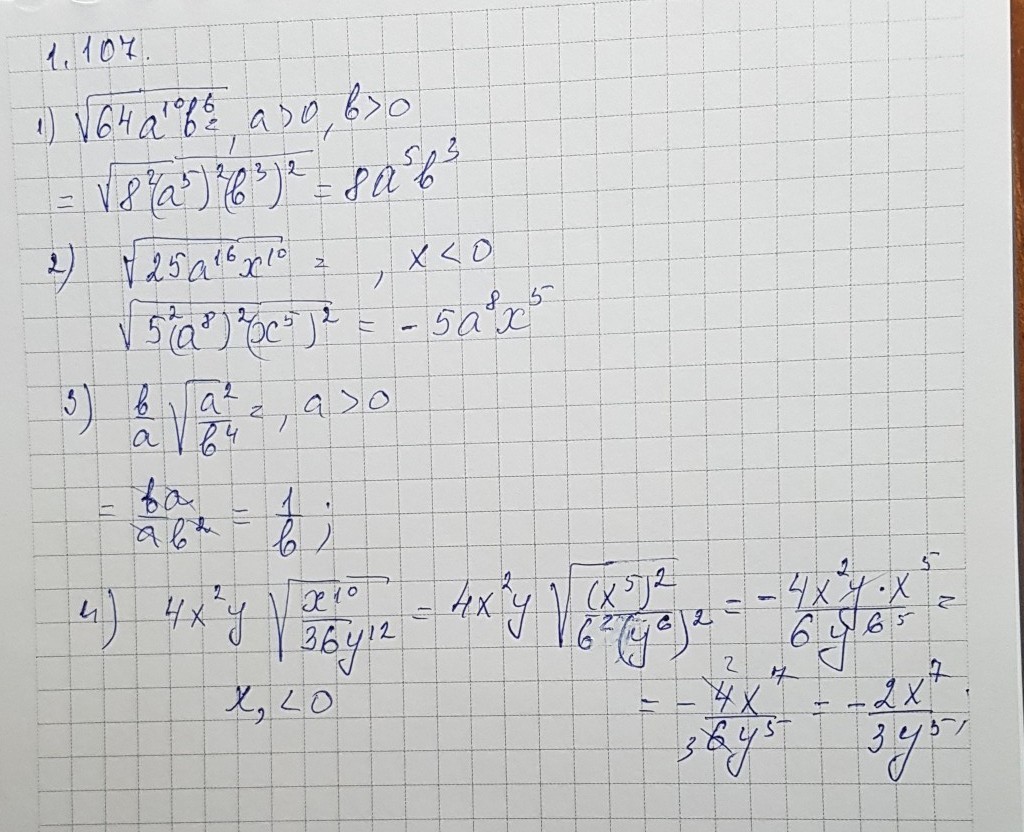 1.107.
1) √64a¹⁰b⁶ = , a > 0, b > 0
= √8²(a⁵)²(b³)² = 8a⁵b³
2) √25a¹⁶x¹⁰ = , x < 0
√5²(a⁸)²(x⁵)² = -5a⁸x⁵
3) b/a √a²/b⁴ = , a > 0
= ba/ab² = 1/b ;
4) 4x²y √x¹⁰/36y¹² = 4x²y √(x⁵)²/6²(y⁶)² = - 4x²y · x⁵/6y⁶ ⁵ =
x, < 0
= - 4 ² x⁷/3 6y⁵ = - 2x⁷/3y⁵ ;